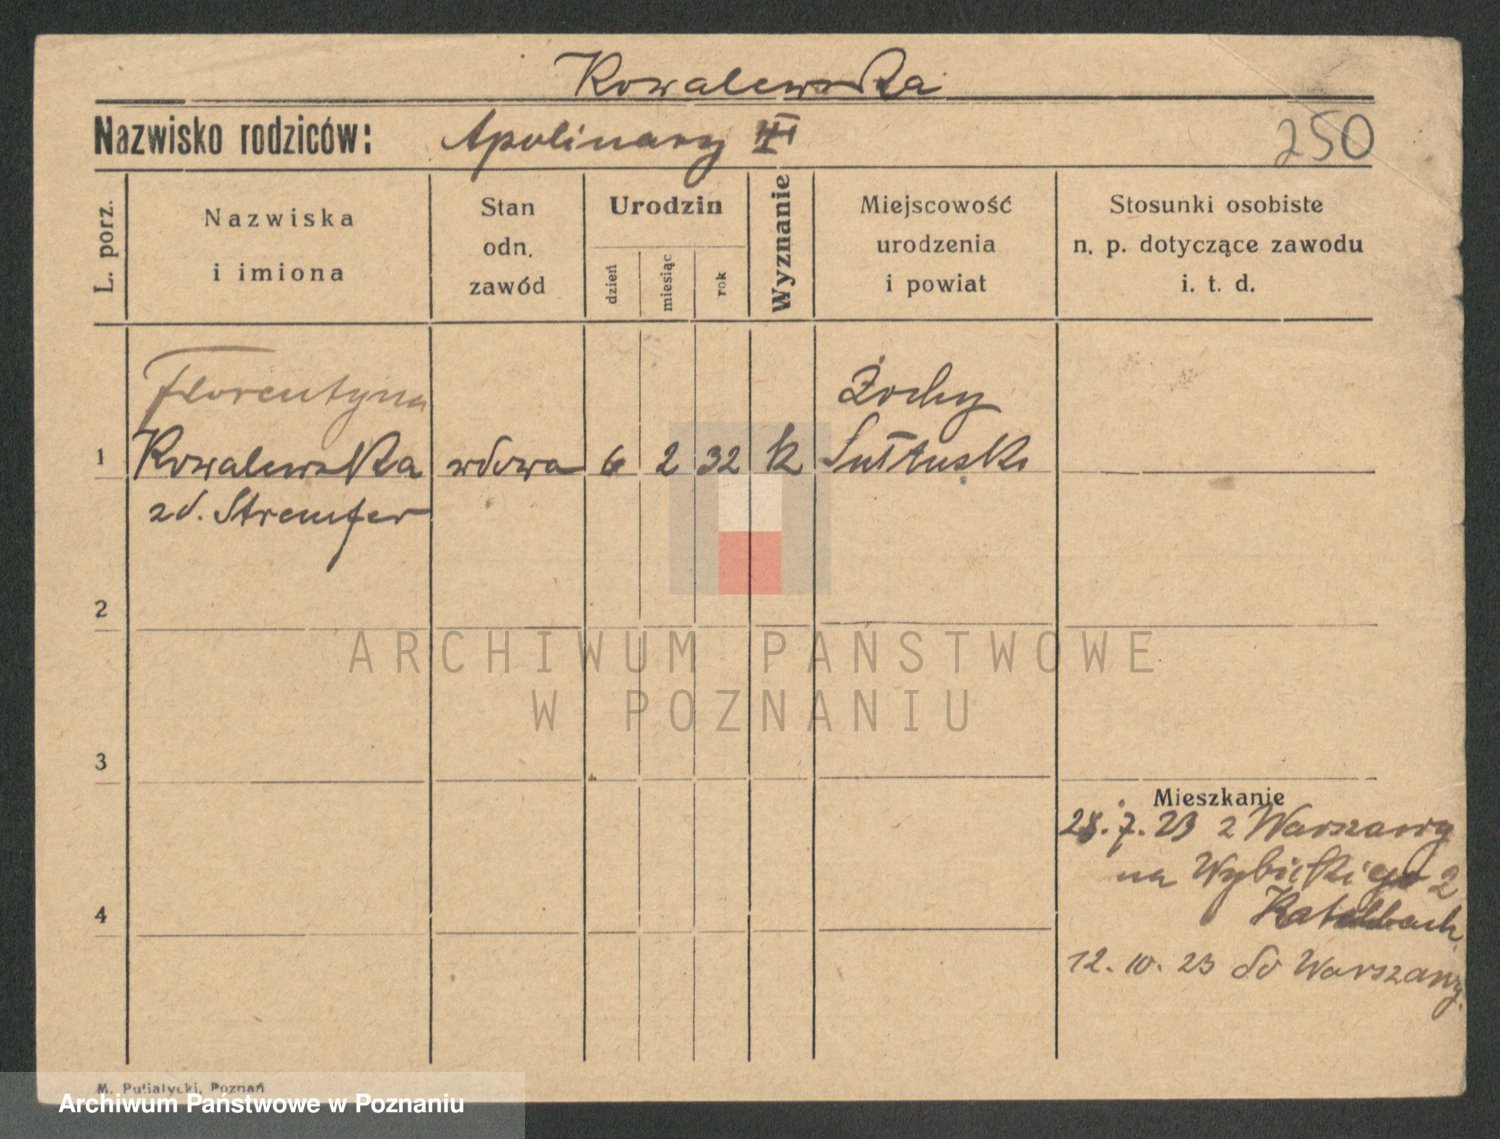 Kowalewska
Nazwisko rodziców: Apolinary III
250
L. porz.
Nazwiska
i imiona
Stan
odn.
zawód
Urodzin
dzień
miesiąc
rok
Wyznanie
Miejscowość
urodzenia
i powiat
Stosunki osobiste
n. p. dotyczące zawodu
i. t. d.
Florentyna
Żochy
1 Kowalewska wdowa 6 2 32 k
zd. Stremfer
2
ARCHIWUM PAŃSTWOWE
W POZNANIU
3
Mieszkanie
28.7.23 z Warszawy
na Wybickiego 2
4
12.10.23 do Warszawy.
M. Putiatycki, Poznań
Archiwum Państwowe w Poznaniu